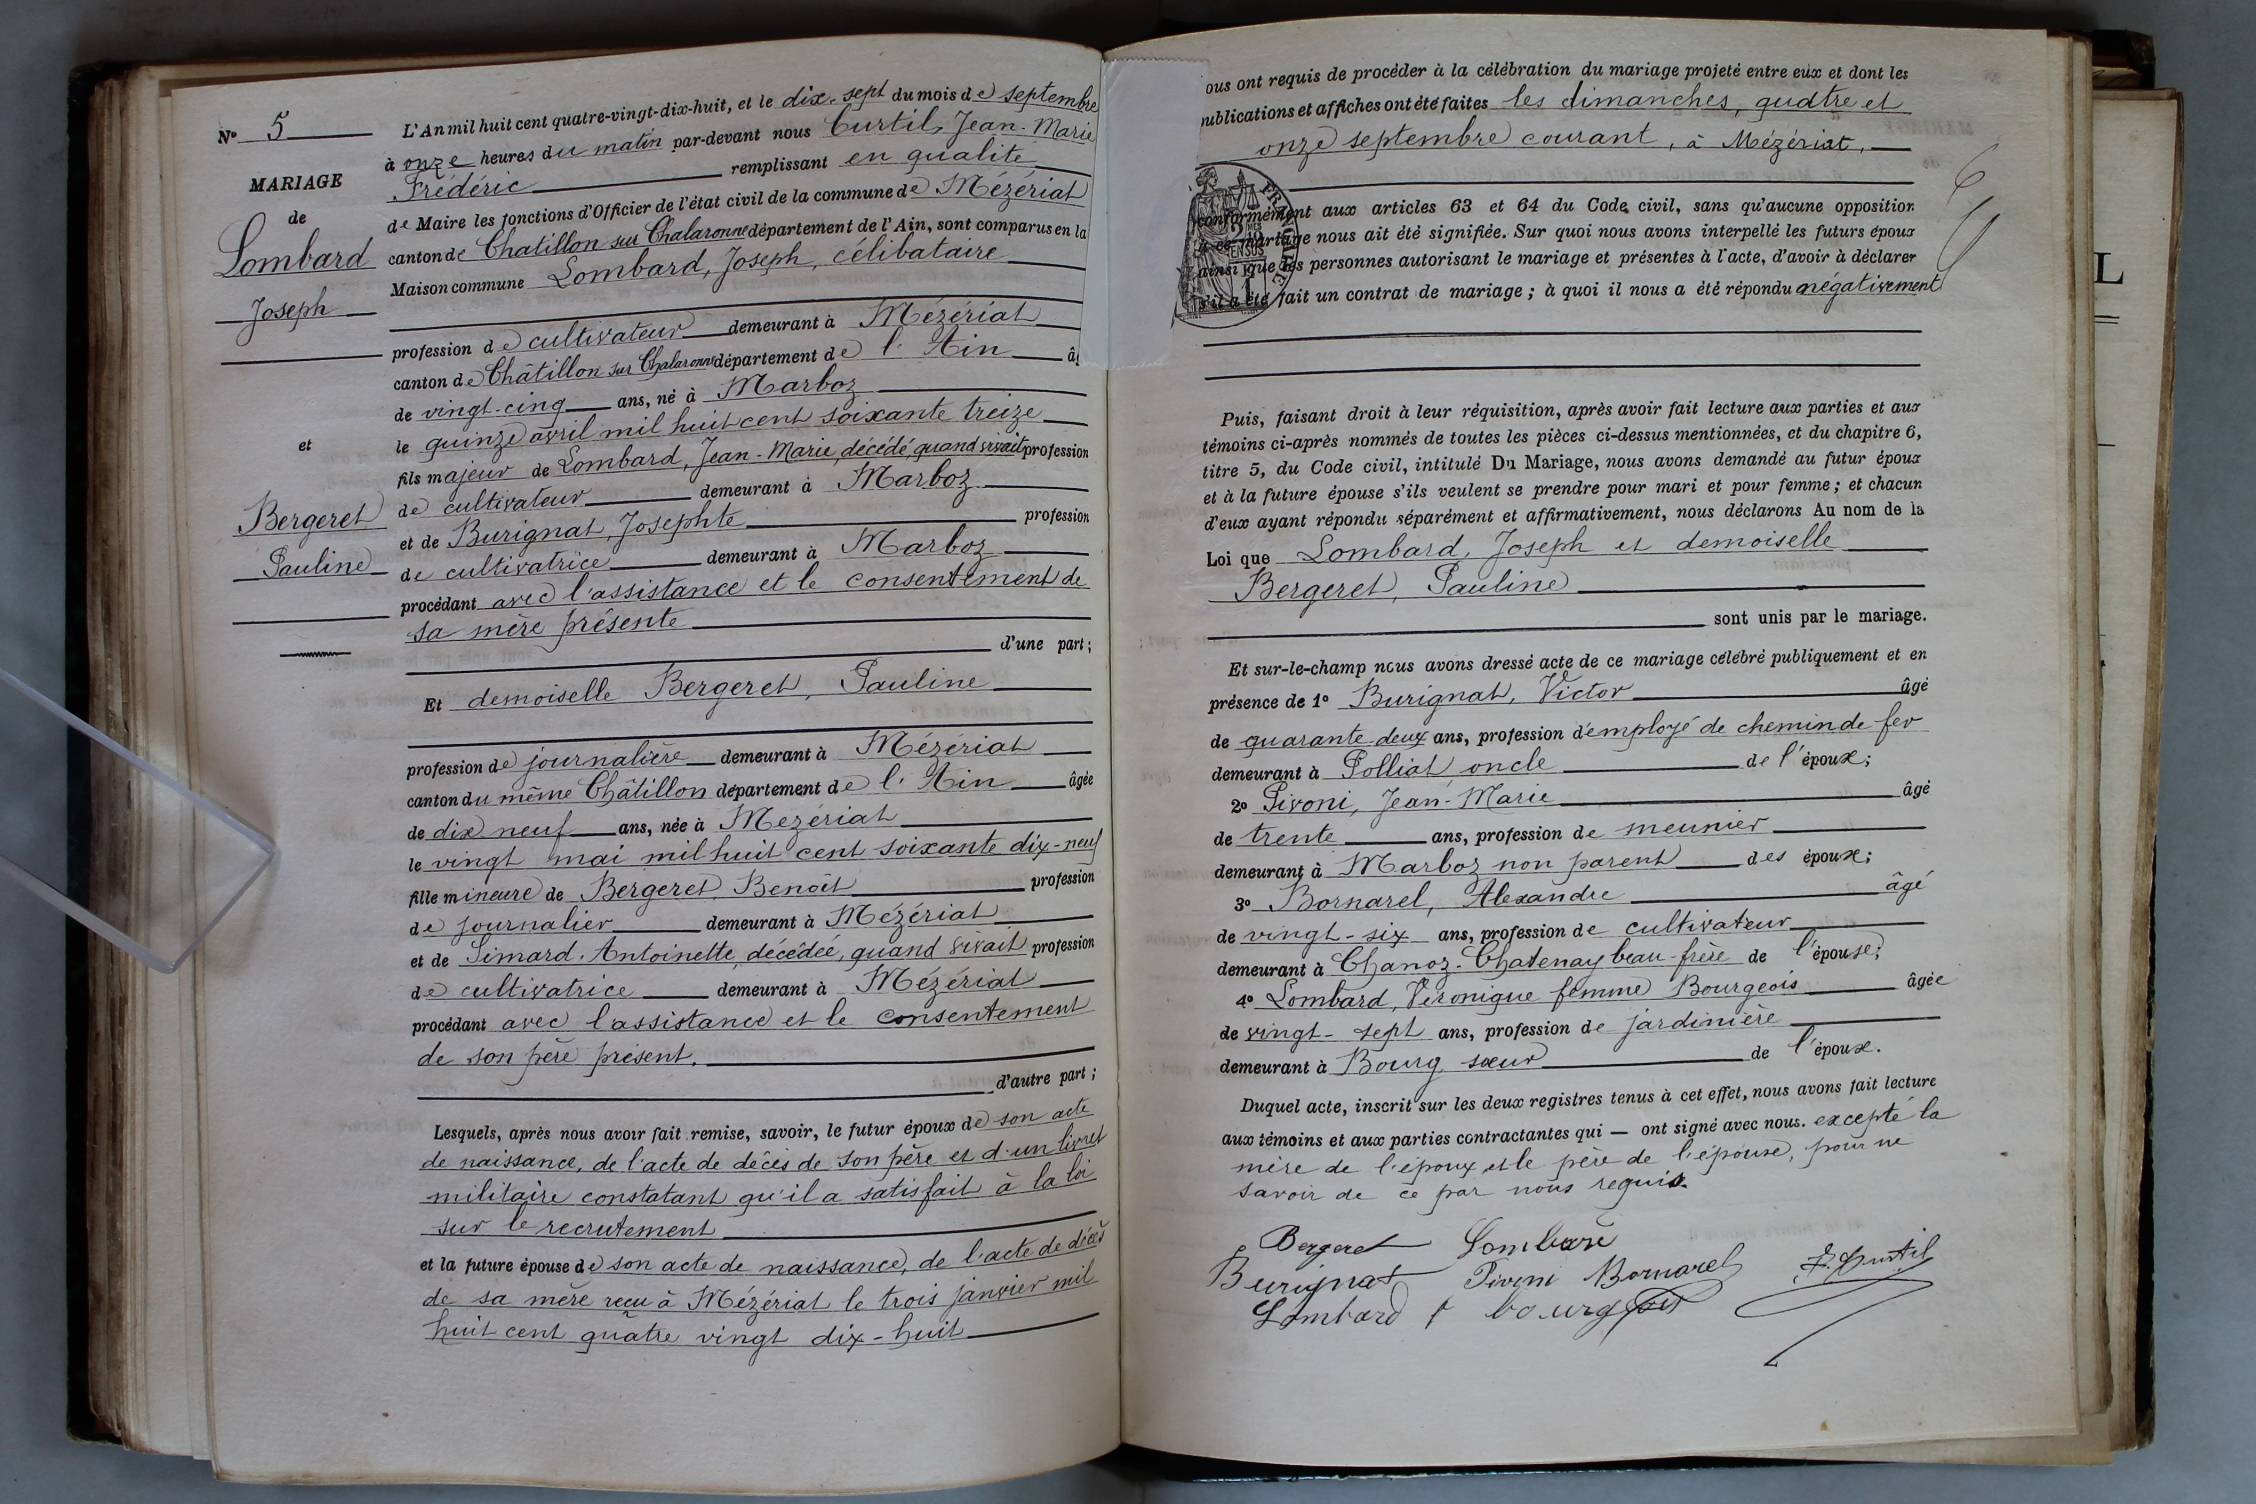 N° 5
MARIAGE
de
Lombard
Joseph
et
Bergeret
Pauline
L'An mil huit cent quatre-vingt-dix-huit, et le dix-sept du mois de septembre
à onze heures du matin par-devant nous Curtil, Jean-Marie
Frédéric remplissant en qualité
de Maire les fonctions d'Officier de l'état civil de la commune de Mézériat
canton de Chatillon sur Chalaronne département de l'Ain, sont comparus en la
Maison commune Lombard, Joseph, célibataire
profession de cultivateur demeurant à Mézériat
canton de Châtillon sur Chalaronne département de l'Ain âg
de vingt-cinq ans, né à Marboz
le quinze avril mil huit cent soixante treize
fils majeur de Lombard, Jean-Marie, décédé, quand vivait profession
de cultivateur demeurant à Marboz
et de Burignat, Josephte profession
de cultivatrice demeurant à Marboz
procédant avec l'assistance et le consentement de
sa mère présente
d'une part;
Et demoiselle Bergeret, Pauline
profession de journalière demeurant à Mézériat
canton du même Châtillon département de l'Ain âgée
de dix neuf ans, née à Mézériat
le vingt mai mil huit cent soixante dix-neuf
fille mineure de Bergeret, Benoît profession
de journalier demeurant à Mézériat
et de Simard, Antoinette, décédée, quand vivait profession
de cultivatrice demeurant à Mézériat
procédant avec l'assistance et le consentement
de son père présent.
d'autre part;
Lesquels, après nous avoir fait remise, savoir, le futur époux de son acte
de naissance, de l'acte de décès de son père et d'un livret
militaire constatant qu'il a satisfait à la loi
sur le recrutement
et la future épouse de son acte de naissance, de l'acte de décès
de sa mère reçu à Mézériat le trois janvier mil
huit cent quatre vingt dix-huit
ous ont requis de procéder à la célébration du mariage projeté entre eux et dont les
publications et affiches ont été faites les dimanches, quatre et
onze septembre courant, à Mézériat,
conformément aux articles 63 et 64 du Code civil, sans qu'aucune opposition
à ce mariage nous ait été signifiée. Sur quoi nous avons interpellé les futurs époux
ainsi que les personnes autorisant le mariage et présentes à l'acte, d'avoir à déclarer
s'il a été fait un contrat de mariage; à quoi il nous a été répondu négativement
Puis, faisant droit à leur réquisition, après avoir fait lecture aux parties et aux
témoins ci-après nommés de toutes les pièces ci-dessus mentionnées, et du chapitre 6,
titre 5, du Code civil, intitulé Du Mariage, nous avons demandé au futur époux
et à la future épouse s'ils veulent se prendre pour mari et pour femme; et chacun
d'eux ayant répondu séparément et affirmativement, nous déclarons Au nom de la
Loi que Lombard, Joseph et demoiselle
Bergeret, Pauline
sont unis par le mariage.
Et sur-le-champ nous avons dressé acte de ce mariage célébré publiquement et en
présence de 1° Burignat, Victor âgé
de quarante-deux ans, profession d'employé de chemin de fer
demeurant à Polliat, oncle de l'époux;
2° Pivoni, Jean-Marie âgé
de trente ans, profession de meunier
demeurant à Marboz non parent des époux;
3° Bornarel, Alexandre âgé
de vingt-six ans, profession de cultivateur
demeurant à Chanoz-Chatenay beau-frère de l'épouse;
4° Lombard, Véronique femme Bourgeois âgée
de vingt-sept ans, profession de jardinière
demeurant à Bourg, sœur de l'époux.
Duquel acte, inscrit sur les deux registres tenus à cet effet, nous avons fait lecture
aux témoins et aux parties contractantes qui — ont signé avec nous. excepté la
mère de l'époux et le père de l'épouse, pour ne
savoir de ce par nous requis.
Bergeret Lombard
Burignat Pivoni Bornarel F. Curtil
Lombard f bourgeois